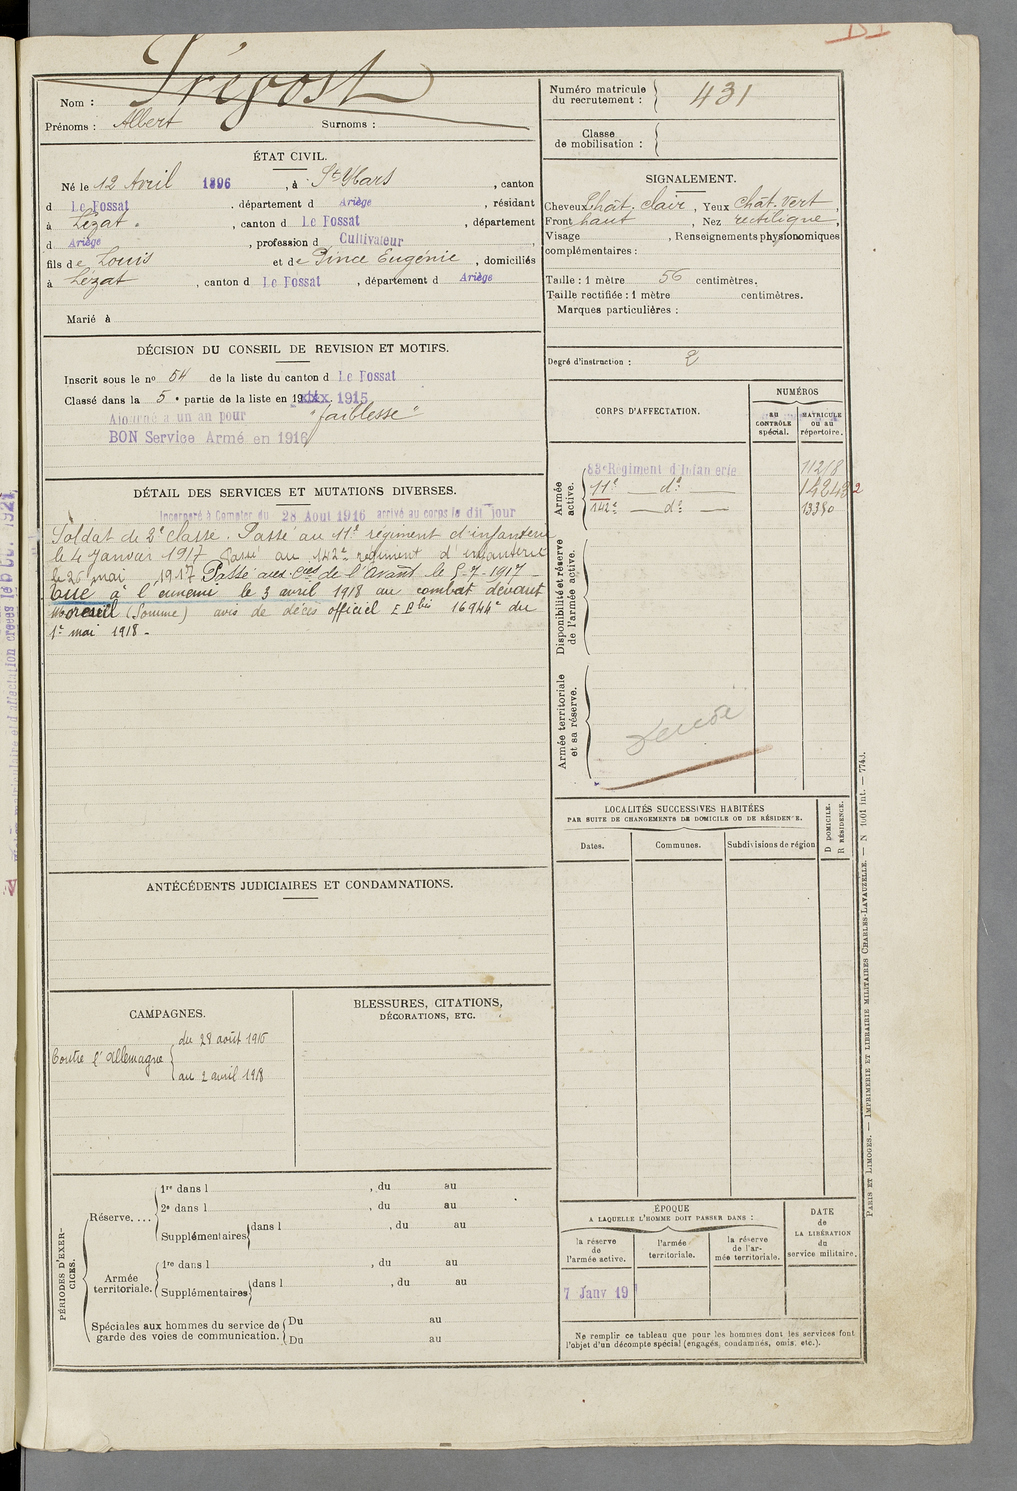 Prévost
Nom :
Prénoms : Albert Surnoms :
ÉTAT CIVIL.
Né le 12 Avril 1896, à St Ybars, canton
d Le Fossat, département d Ariège, résidant
à Lézat, canton d Le Fossat, département
d Ariège, profession d Cultivateur,
fils de Louis et de Pince Eugénie, domiciliés
à Lézat, canton d Le Fossat, département d Ariège
Marié à
DÉCISION DU CONSEIL DE REVISION ET MOTIFS.
Inscrit sous le no 54 de la liste du canton d Le Fossat
Classé dans la 5e partie de la liste en 19 1915
Ajourné à un an pour "faiblesse"
BON Service Armé en 1916
DÉTAIL DES SERVICES ET MUTATIONS DIVERSES.
Incorporé à Compter du 28 Aout 1916 arrivé au corps le dit jour
Soldat de 2e classe. Passé au 11e régiment d'infanterie
le 4 Janvier 1917 Passé au 142e régiment d'infanterie
le 26 mai 1917 Passé aux Cies de l'Avant le 5-7-1917
Tué à l'ennemi le 3 avril 1918 au combat devant
Moreuil (Somme) avis de décès officiel E.P bis 16944 du
1er mai 1918.
ANTÉCÉDENTS JUDICIAIRES ET CONDAMNATIONS.
CAMPAGNES.
Contre l'Allemagne
du 28 août 1916
au 2 avril 1918
BLESSURES, CITATIONS,
DÉCORATIONS, ETC.
PÉRIODES D'EXERCICES.
Réserve....
1re dans l , du au
2e dans l , du au
Supplémentaires dans l , du au
Armée
territoriale.
1re dans l , du au
Supplémentaires dans l , du au
Spéciales aux hommes du service de
garde des voies de communication.
Du au
Du au
Numéro matricule
du recrutement : 431
Classe
de mobilisation :
SIGNALEMENT.
Cheveux Chât. clair, Yeux chât. vert,
Front haut, Nez rectiligne,
Visage , Renseignements physionomiques
complémentaires :
Taille : 1 mètre 56 centimètres.
Taille rectifiée : 1 mètre centimètres.
Marques particulières :
Degré d'instruction : 2
CORPS D'AFFECTATION.
NUMÉROS
au
CONTRÔLE
spécial.
MATRICULE
ou au
répertoire.
Armée
active.
83e Régiment d'Infanterie 11218
11e do
142e do
Disponibilité et réserve
de l'armée active.
Armée territoriale
et sa réserve.
LOCALITÉS SUCCESSIVES HABITÉES
PAR SUITE DE CHANGEMENTS DE DOMICILE OU DE RÉSIDENCE.
D DOMICILE.
R RÉSIDENCE.
Dates.
Communes.
Subdivisions de région
ÉPOQUE
A LAQUELLE L'HOMME DOIT PASSER DANS :
la réserve
de
l'armée active.
l'armée
territoriale.
la réserve
de l'ar-
mée territoriale.
DATE
de
LA LIBÉRATION
du
service militaire.
7 Janv 19
Ne remplir ce tableau que pour les hommes dont les services font
l'objet d'un décompte spécial (engagés, condamnés, omis, etc.).
PARIS ET LIMOGES. — IMPRIMERIE ET LIBRAIRIE MILITAIRES CHARLES-LAVAUZELLE. — N 1001 int. — 7743.